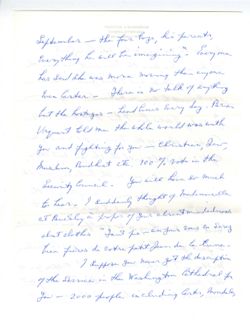 September — the four boys, his parents,
everything he will be imagining". Everyone
has said she was more moving than anyone.
Even Carter — There is no talk of anything
but the hostages — headlines every day. Brian
Urquhart told me the whole world was with
you and fighting for you — Christian, Jew,
Muslim, Buddhist etc 100% vote in the
Security Council. You will have so much
to hear. I suddenly thought of
at Berkeley a propos of your absent mindedness
about clothes
bien frères de votre petit
I suppose you never got the description
of the service in the Washington Cathedral for
you — 2000 people including Carter, Mondale,